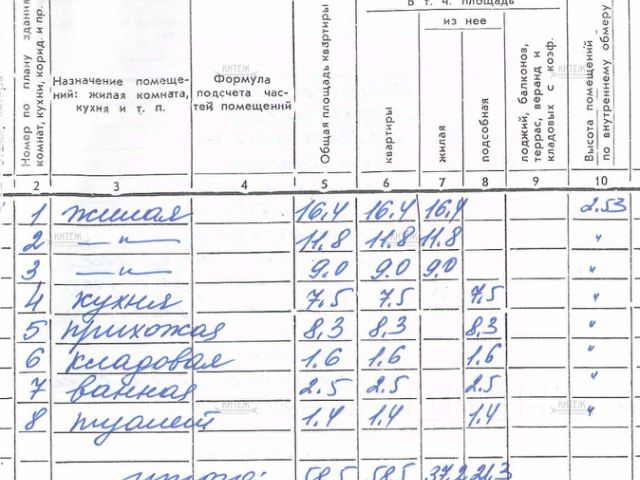 В т. ч. площадь
из нее
Номер по плану здания
комнат, кухни, корид. и пр.
Назначение помеще-
ний: жилая комната,
кухня и т. п.
Формула
подсчета час-
тей помещений
Общая площадь квартиры
квартиры
жилая
подсобная
лоджий, балконов,
террас, веранд и
кладовых с коэф.
Высота помещений
по внутреннему обмеру
2 3 4 5 6 7 8 9 10
1 жилая 16.4 16.4 16.4 2.53
2 — " — 11.8 11.8 11.8 "
3 — " — 9.0 9.0 9.0 "
4 кухня 7.5 7.5 7.5 "
5 прихожая 8,3 8,3 8,3 "
6 кладовая 1.6 1.6 1.6 "
7 ванная 2.5 2.5 2.5 "
8 туалет 1.4 1.4 1.4 "
итого: 58.5 58.5 37.2 21.3
КИТЕЖ